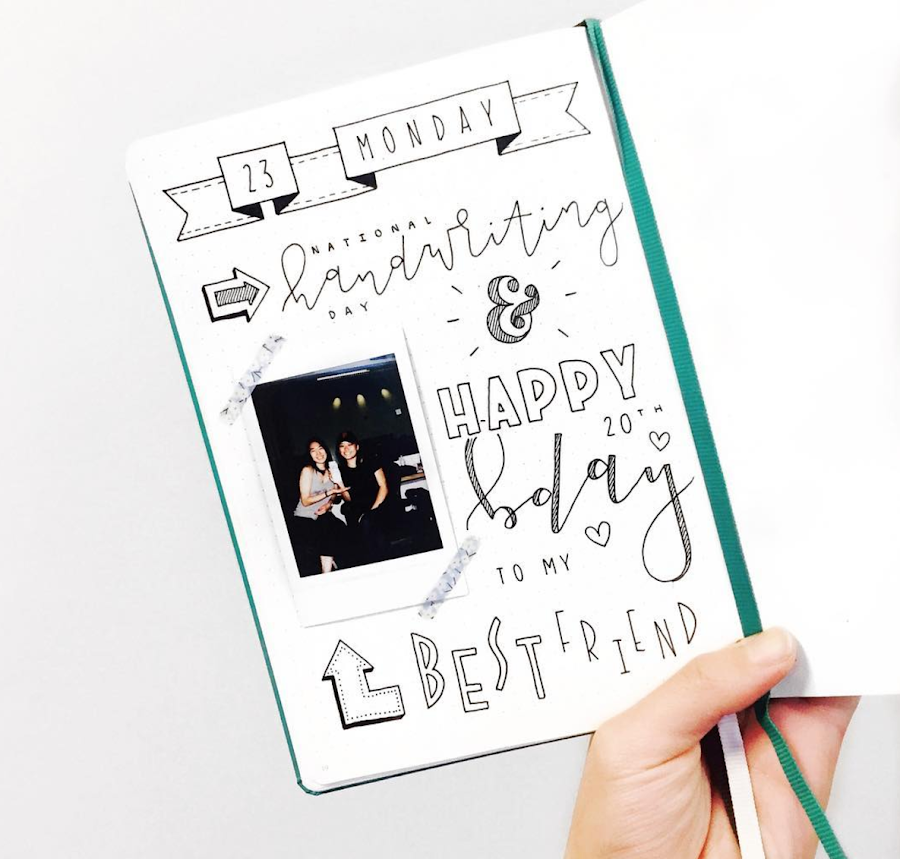 23 MONDAY
NATIONAL
handwriting
DAY
&
HAPPY
20TH
bday
TO MY
BEST FRIEND